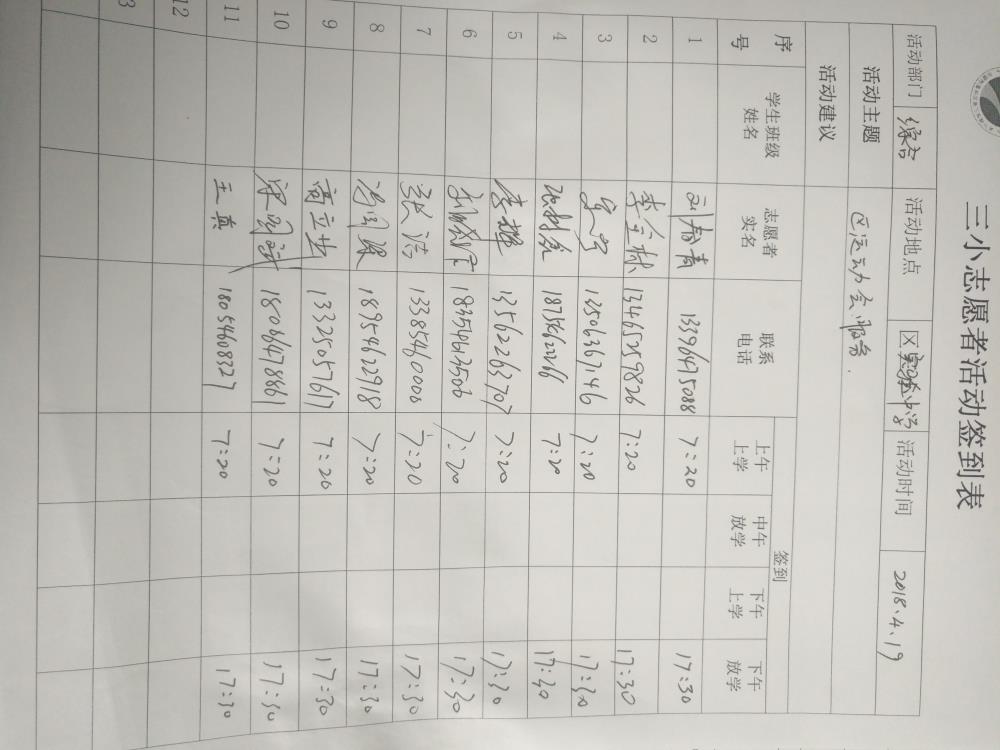 三小志愿者活动签到表
活动部门 综合 活动地点 区实验中学 活动时间 2018.4.19
活动主题 区运动会服务.
活动建议
序号 学生班级姓名 志愿者实名 联系电话 签到
上午上学 中午放学 下午上学 下午放学
1 刘春青 13396475088 7:20 17:30
2 李金林 13465259826 7:20 17:30
3 13506367146 7:20 17:30
4 18756622266 7:20 17:30
5 李耀 13562263707 7:20 17:30
6 18354613506 7:20 17:30
7 张洁 13385460006 7:20 17:30
8 18954622918 7:20 17:30
9 高立华 13325057617 7:20 17:30
10 18066478861 7:20 17:30
11 王真 18054608327 7:20 17:30
12
3